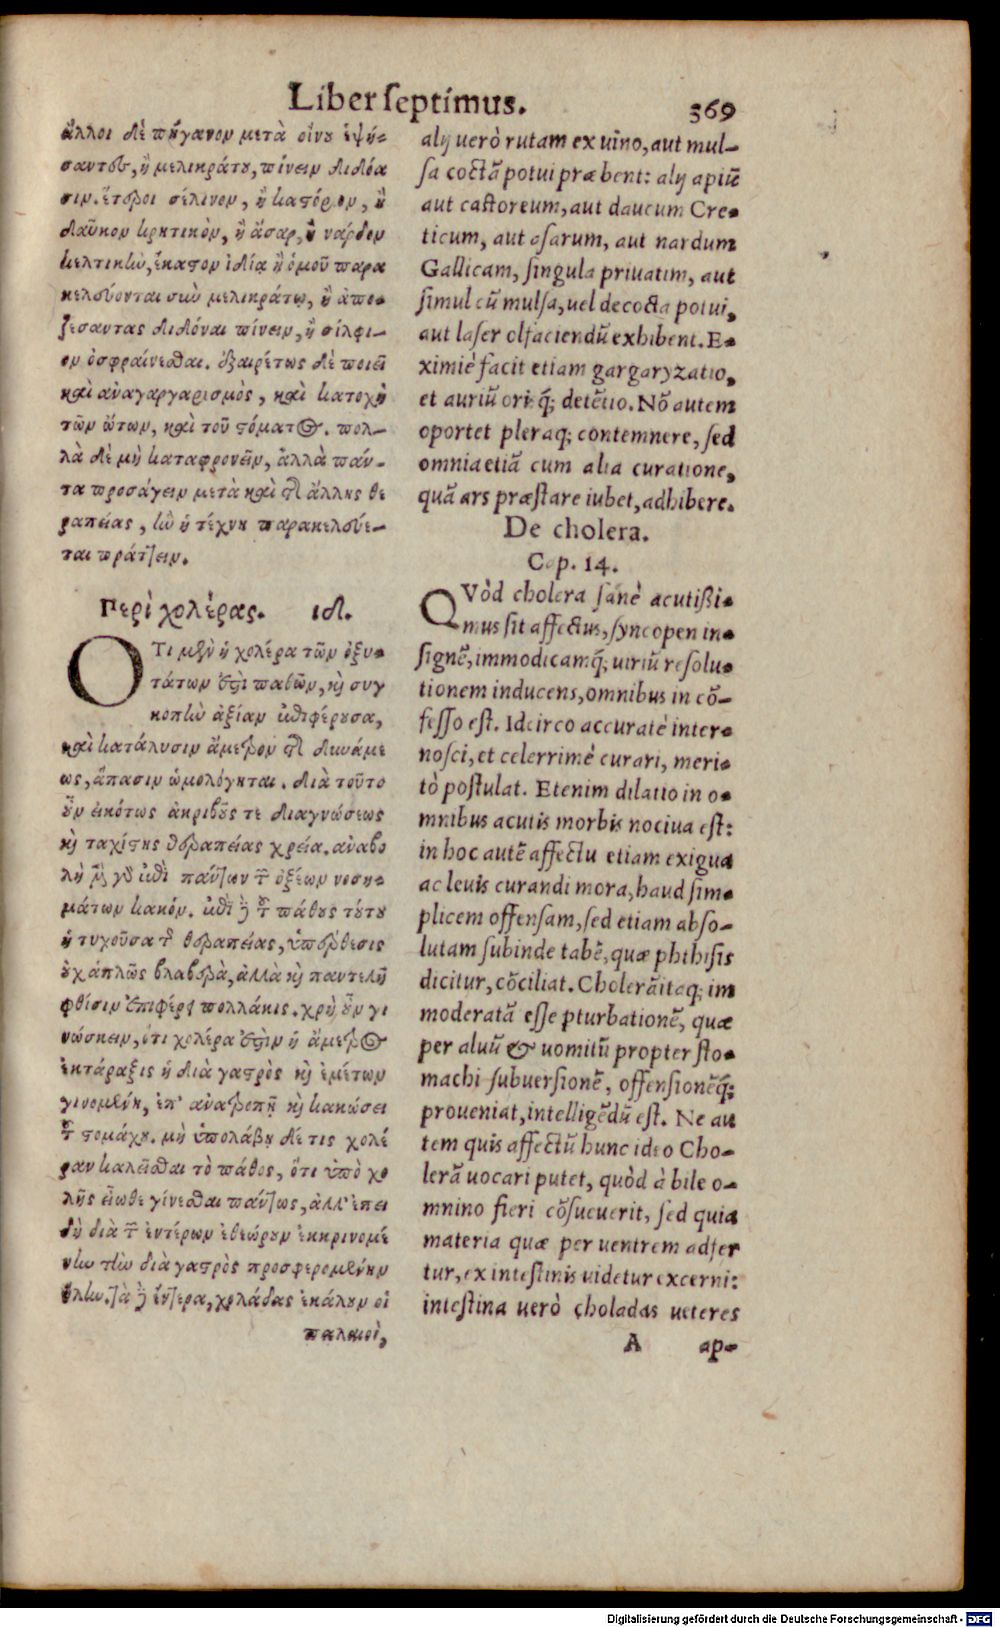 Liber septimus.
369
ἄλλοι δὲ πήγανον μετὰ οἴνου ἑψή-
σαντες, ἢ μελικράτου, πίνειν διδόα
σιν. ἕτεροι σέλινον, ἢ καστόριον, ἢ
δαῦκον κρητικὸν, ἢ ἄσαρ, ἢ νάρδον
κελτικὼ, ἕκαστον ἰδίᾳ ἢ ὁμοῦ παρα
κελεύονται σὺν μελικράτῳ, ἢ ἀπο-
ζεσαντας διδόναι πίνειν, ἢ σίλφι-
ον ὀσφραίνεσθαι. ἐξαιρέτως δὲ ποιεῖ
καὶ ἀναγαργαρισμὸς, καὶ κατοχὴ
τῶν ὤτων, καὶ τοῦ στόματος. πολ-
λὰ δὲ μὴ καταφρονεῖν, ἀλλὰ πάν-
τα προσάγειν μετὰ καὶ τῆς ἄλλης θε
ραπείας, ἣν ἡ τέχνη παρακελεύε-
ται πράττειν.
Περὶ χολέρας. ιδ.
ΟΤι μὲν ἡ χολέρα τῶν ὀξυ-
τάτων ἐστὶ παθῶν, καὶ συγ
κοπὴν ἀξίαν ἐπιφέρουσα,
καὶ κατάλυσιν ἄμετρον τῆς δυνάμε
ως, ἅπασιν ὡμολόγηται. διὰ τοῦτο
οὖν εἰκότως ἀκριβοῦς τε διαγνώσεως
καὶ ταχίστης θεραπείας χρεία. ἀναβο
λὴ μὲν γὰρ ἐπὶ πάντων τῶν ὀξέων νοση-
μάτων κακόν. ἐπὶ δὲ τοῦ πάθους τούτου
ἡ τυχοῦσα τῆς θεραπείας, ὑπέρθεσις
οὐχ ἁπλῶς βλαβερὰ, ἀλλὰ καὶ παντελῆ
φθίσιν ἐπιφέρει πολλάκις. χρὴ οὖν γι
νώσκειν, ὅτι χολέρα ἐστὶν ἡ ἄμετρος
ἐκτάραξις ἡ διὰ γαστρὸς καὶ ἐμέτων
γινομένη, ἐπ' ἀνατροπῇ καὶ κακώσει
τοῦ στομάχου. μὴ ὑπολάβῃ δέ τις χολέ
ραν καλεῖσθαι τὸ πάθος, ὅτι ὑπὸ χο
λῆς εἴωθε γίνεσθαι πάντως, ἀλλ' ἐπει
δὴ διὰ τῶν ἐντέρων ἐθεώρουν ἐκκρινομέ
νην τὴν διὰ γαστρὸς προσφερομένην
ὕλην. τὰ δὲ ἔντερα, χολάδας ἐκάλουν οἱ
παλαιοὶ,
alij uerò rutam ex uino, aut mul-
sa coctã potui præbent: alij apiũ
aut castoreum, aut daucum Cre-
ticum, aut asarum, aut nardum
Gallicam, singula priuatim, aut
simul cũ mulsa, uel decocta potui,
aut laser olfaciendũ exhibent. E-
ximiè facit etiam gargaryzatio,
et auriũ oris q́; detẽtio. Nõ autem
oportet pleraq; contemnere, sed
omnia etiã cum alia curatione,
quã ars præstare iubet, adhibere.
De cholera.
Cap. 14.
QVòd cholera sanè acutißi-
mus sit affectus, syncopen in-
signẽ, immodicamq́; uiriũ resolu-
tionem inducens, omnibus in cõ-
fesso est. Idcirco accuratè inter-
nosci, et celerrimè curari, meri-
tò postulat. Etenim dilatio in o-
mnibus acutis morbis nociua est:
in hoc autẽ affectu etiam exigua
ac leuis curandi mora, haud sim-
plicem offensam, sed etiam abso-
lutam subinde tabẽ, quæ phthisis
dicitur, cõciliat. Cholerã itaq; im
moderatã esse pturbationẽ, quæ
per aluũ & uomitũ propter sto-
machi subuersionẽ, offensionẽq́;
proueniat, intelligẽdũ est. Ne au
tem quis affectũ hunc ideo Cho-
lerã uocari putet, quòd à bile o-
mnino fieri cõsueuerit, sed quia
materia quæ per uentrem adfer
tur, ex intestinis uidetur excerni:
intestina uerò choladas ueteres
A ap-
Digitalisierung gefördert durch die Deutsche Forschungsgemeinschaft - DFG